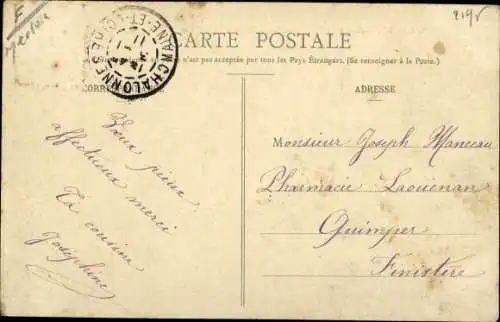 CARTE POSTALE
n'est pas acceptée par tous les Pays Étrangers. (Se renseigner à la Poste.)
CORRE
ADRESSE
CHALONNES
ET-LOIRE
affectueux merci
Ta cousine
Joséphine
Monsieur Joseph Manceau
Pharmacie Laouénan
Quimper
Finistère